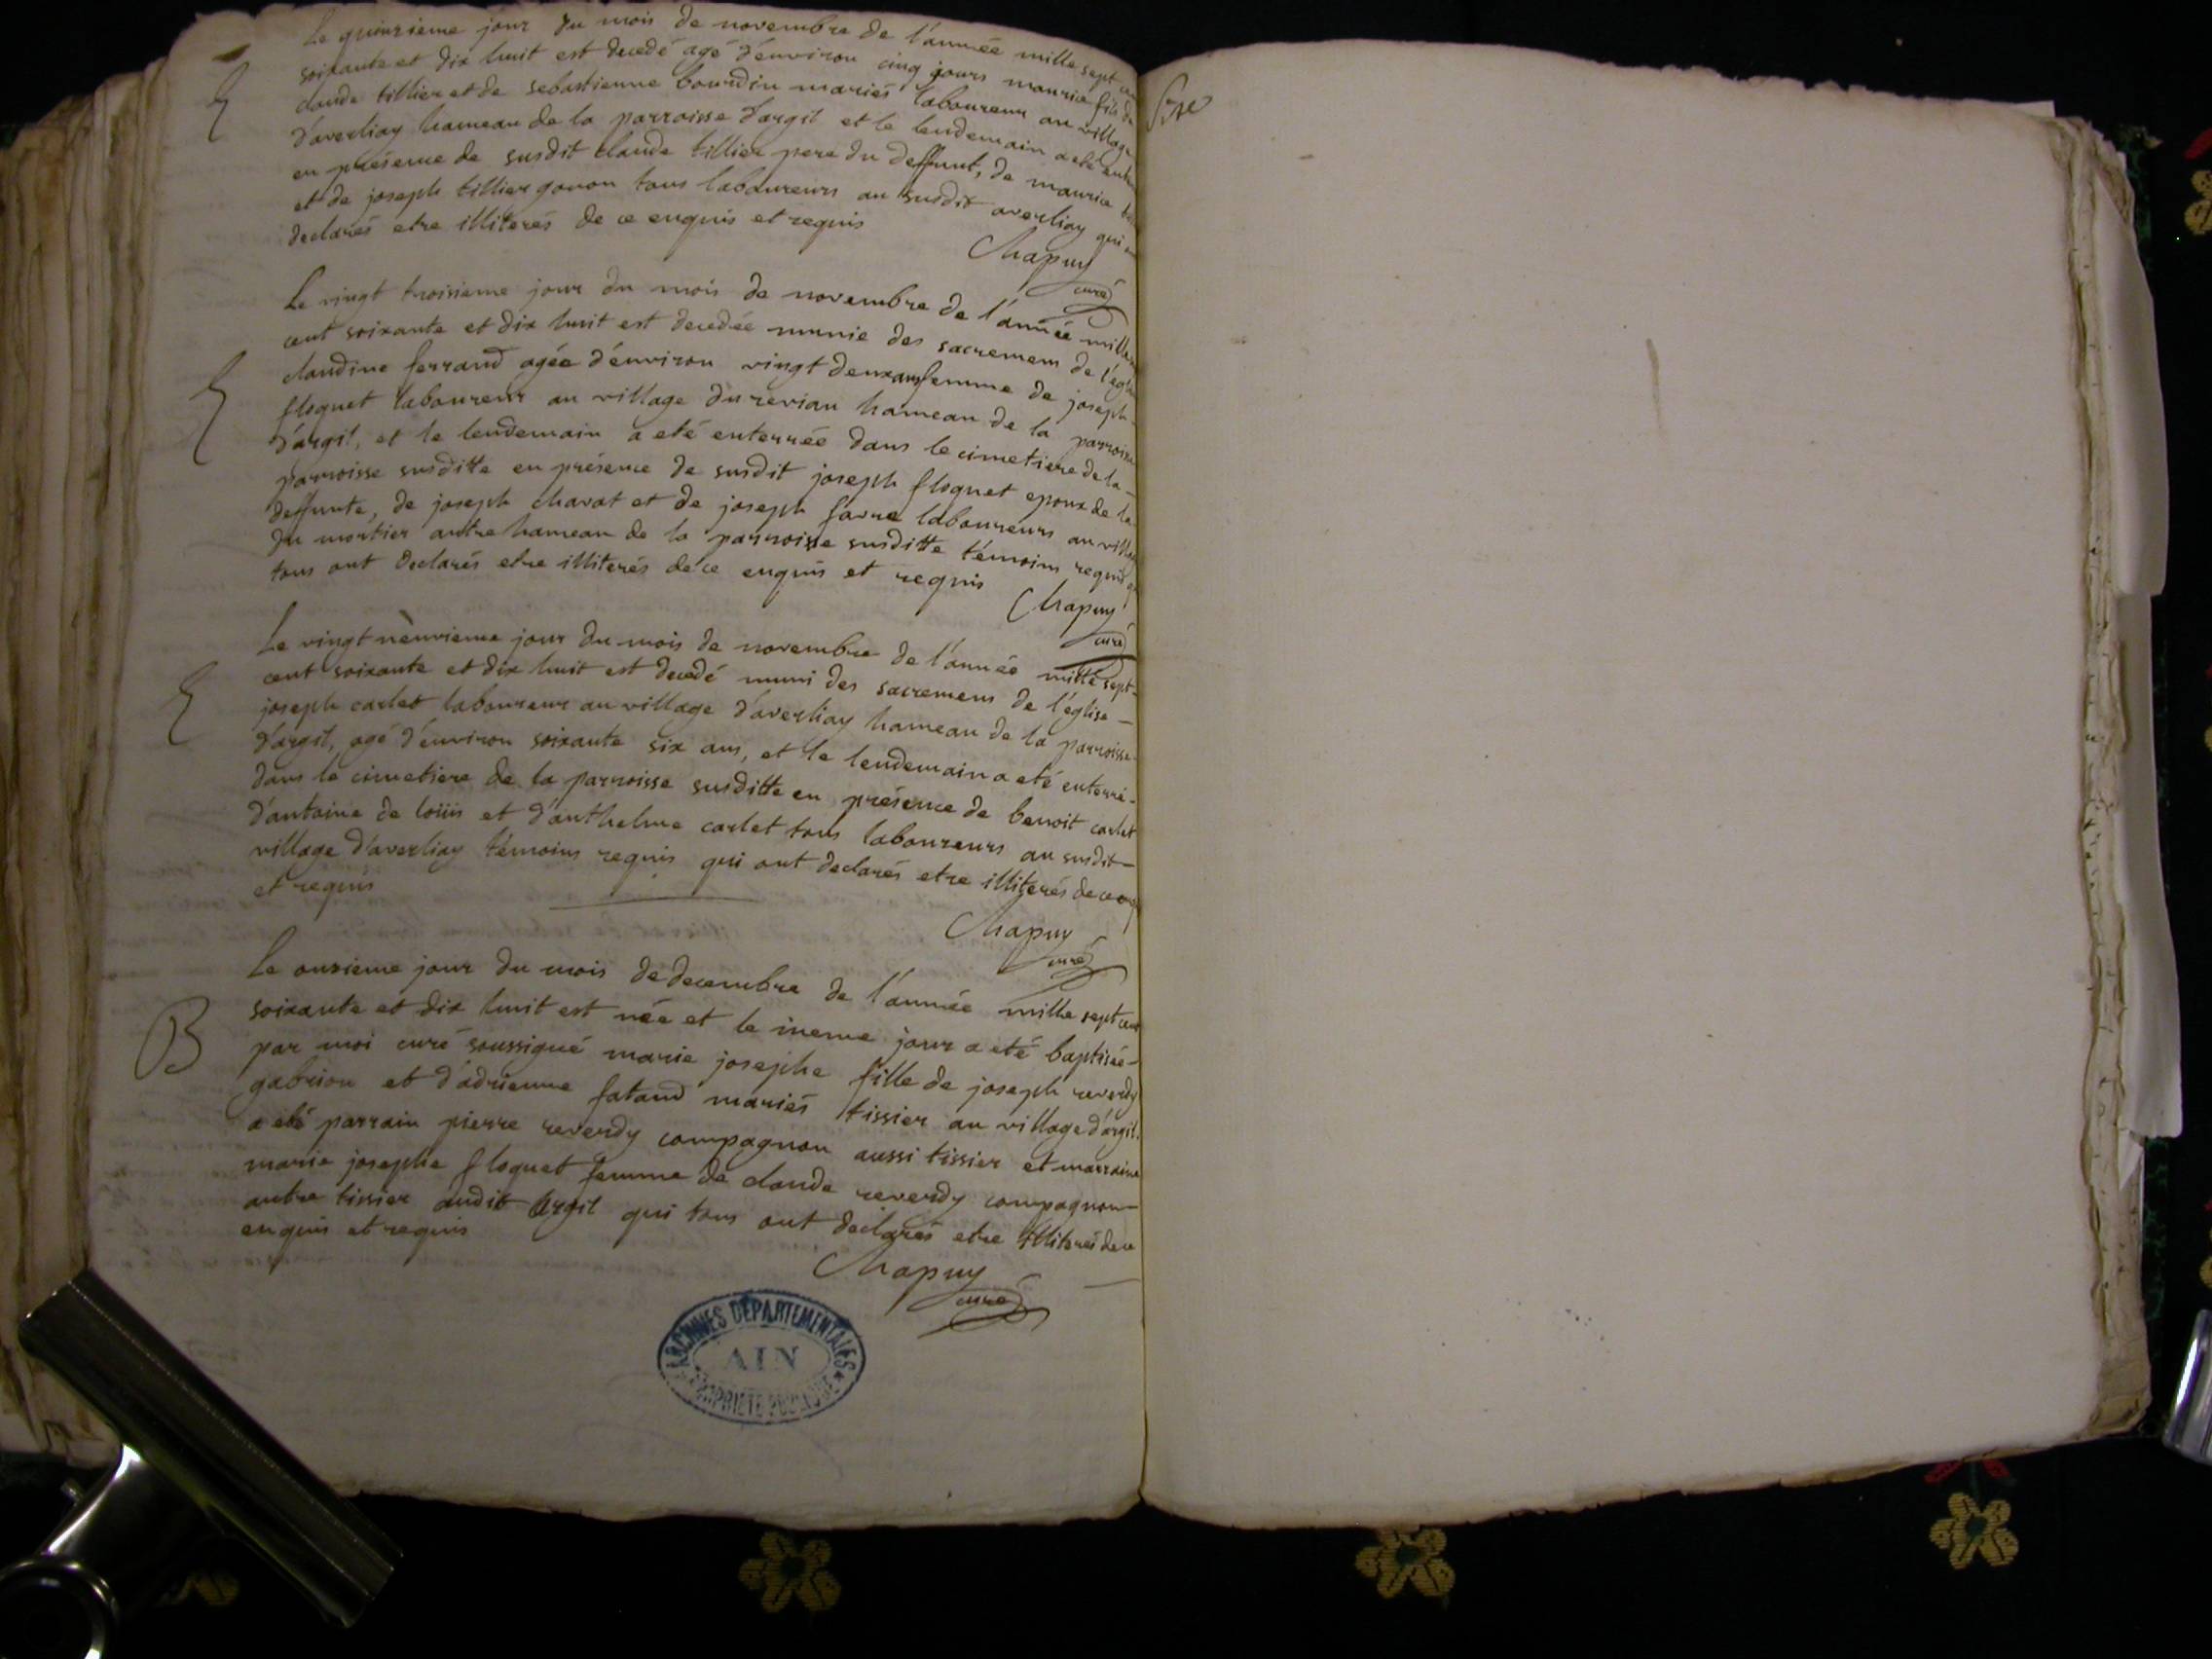 Le quinzieme jour du mois de novembre de l'année mille sept
soixante et dix huit est decedé agé d'environ cinq jours maurice fils de
claude tillier et de sebastienne bourdin mariés laboureur au village
d'averliay hameau de la parroisse d'argit et le lendemain a eté
en présence de susdit claude tillier pere du deffunt, de maurice
et de joseph tillier gonon tous laboureurs au susdit averliay qui
declarés etre illiterés de ce enquis et requis
Chapuy
curé
E
Le vingt troisieme jour du mois de novembre de l'année mille
cent soixante et dix huit est decedée munie des sacremens de l'eglise
claudine ferrand agée d'énviron vingt deux ans femme de joseph
floquet laboureur au village du hameau de la parroisse
d'argit, et le lendemain a eté enterrée dans le cimetiere de la
parroisse susditte en présence de susdit joseph floquet epoux de la
deffunte, de joseph charat et de joseph laboureurs au village
du mortier autre hameau de la parroisse susditte témoins requis
tous ont declarés etre illiterés de ce enquis et requis
Chapuy
curé
E
Le vingt neuvieme jour du mois de novembre de l'année mille sept
cent soixante et dix huit est decedé muni des sacremens de l'église
joseph carlet laboureur au village d'averliay hameau de la parroisse
d'argit, agé d'énviron soixante six ans, et le lendemain a eté enterré
dans le cimetiere de la parroisse susditte en présence de benoit carlet
d'antoine de loüis et d'anthelme carlet tous laboureurs au susdit
village d'averliay témoins requis qui ont declarés etre illiterés de ce
et requis
Chapuy
curé
E
Le onzieme jour du mois de decembre de l'année mille sept cent
soixante et dix huit est née et le meme jour a eté baptisée
par moi curé soussigné marie josephe fille de joseph reverdy
gabrion et d'adrienne fatand mariés tissier au village d'argit.
a eté parrain pierre reverdy compagnon aussi tissier et marraine
marie josephe floquet femme de claude reverdy compagnon
autre tissier audit argit qui tous ont declarés etre illiterés de ce
enquis et requis
Chapuy
curé
B
ARCHIVES DEPARTEMENTALES
AIN
PROPRIETE PUBLIQUE